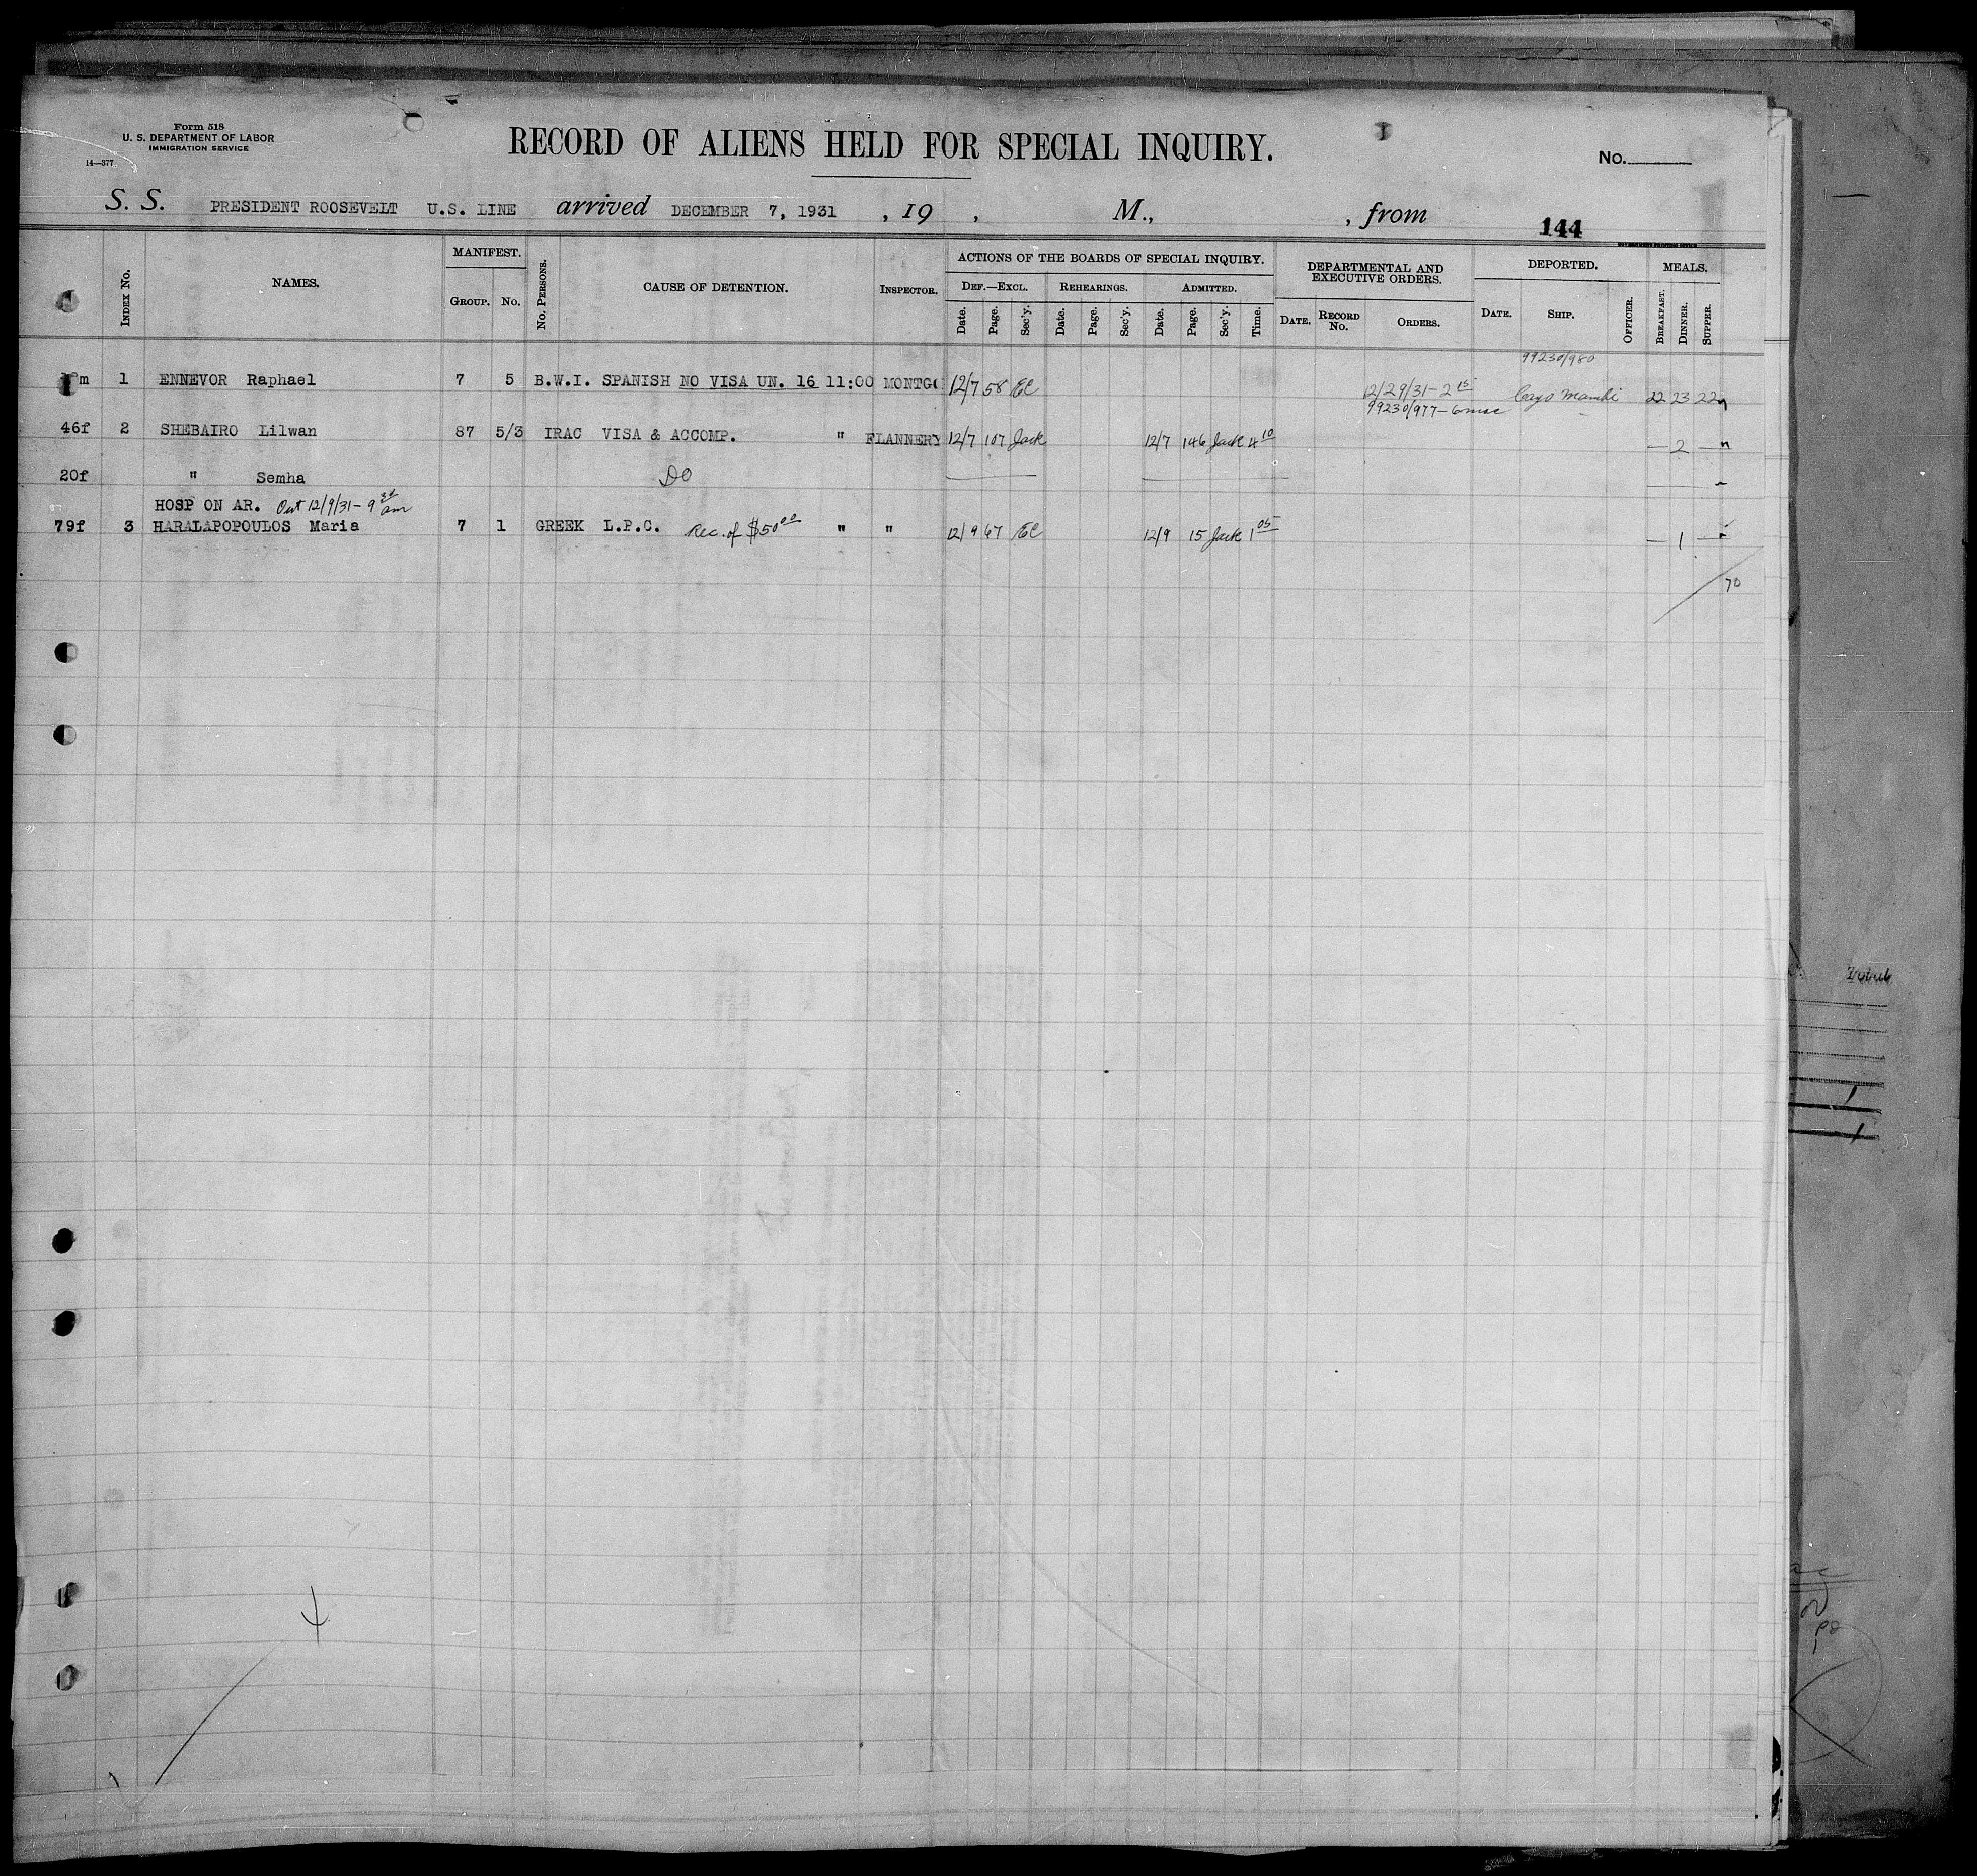 Form 518
U. S. DEPARTMENT OF LABOR
IMMIGRATION SERVICE
14—377
RECORD OF ALIENS HELD FOR SPECIAL INQUIRY.
No.
S. S. PRESIDENT ROOSEVELT U.S. LINE arrived DECEMBER 7, 1931 , 19 , M., , from
144
INDEX NO. NAMES. MANIFEST. GROUP. NO. NO. PERSONS. CAUSE OF DETENTION. INSPECTOR. ACTIONS OF THE BOARDS OF SPECIAL INQUIRY. DEPARTMENTAL AND EXECUTIVE ORDERS. DEPORTED. MEALS.
DEF.—EXCL. REHEARINGS. ADMITTED.
Date. Page. Sec'y. Date. Page. Sec'y. Date. Page. Sec'y. Time. DATE. RECORD NO. ORDERS. DATE. SHIP. OFFICER. BREAKFAST. DINNER. SUPPER.
99230/980
m 1 ENNEVOR Raphael 7 5 B.W.I. SPANISH NO VISA UN. 16 11:00 MONTGO 12/7 58 EC 12/29/31 - 2 15 Cayo Mambi 22 23 22
99230/977-
46f 2 SHEBAIRO Lilwan 87 5/3 IRAC VISA & ACCOMP. " FLANNERY 12/7 107 Jack 12/7 146 Jack 4 10 — 2 —
20f " Semha DO
HOSP ON AR. Out 12/9/31 - 9 30 am
79f 3 HARALAPOPOULOS Maria 7 1 GREEK L.P.C. Rec. of $50 00 " " 12/9 67 EC 12/9 15 Jack 1 05 — 1 —
70
Totals